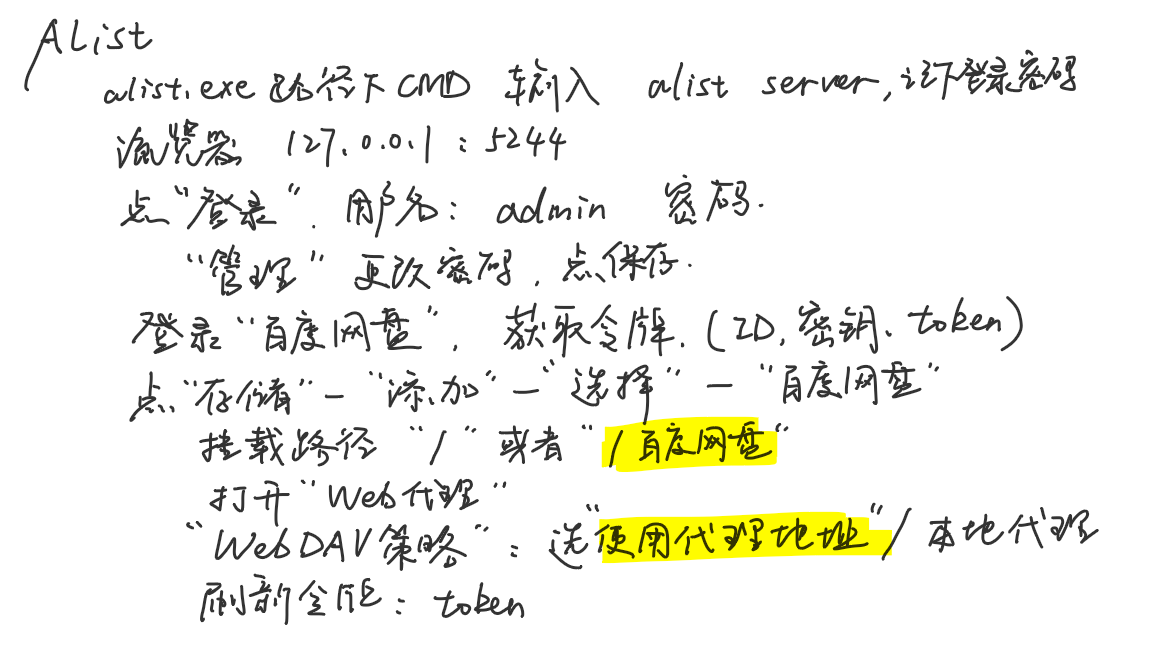 AList
alist.exe路径下CMD 输入 alist server,记下登录密码
浏览器 127.0.0.1:5244
点"登录". 用户名: admin 密码.
"管理" 更改密码, 点保存.
登录"百度网盘", 获取令牌. (ID, 密钥、token)
点"存储"—"添加"—"选择"—"百度网盘"
挂载路径 "/" 或者"/百度网盘"
打开"Web代理"
"WebDAV策略": 选"使用代理地址"/本地代理
刷新令牌: token